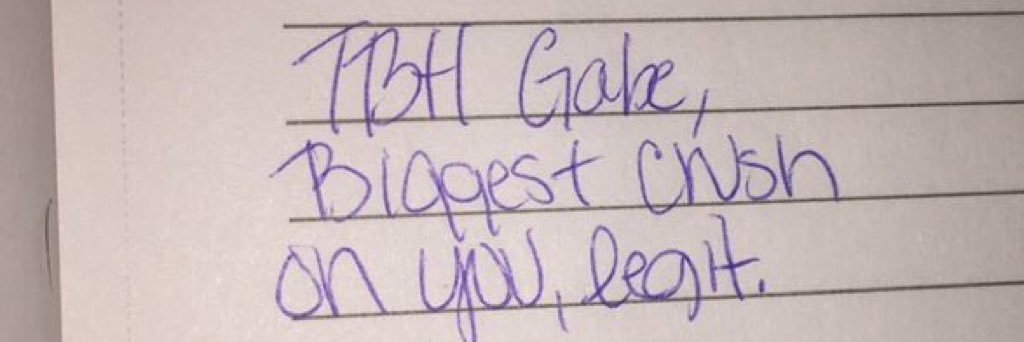 TBH Gabe,
Biggest crush
on you, legit.